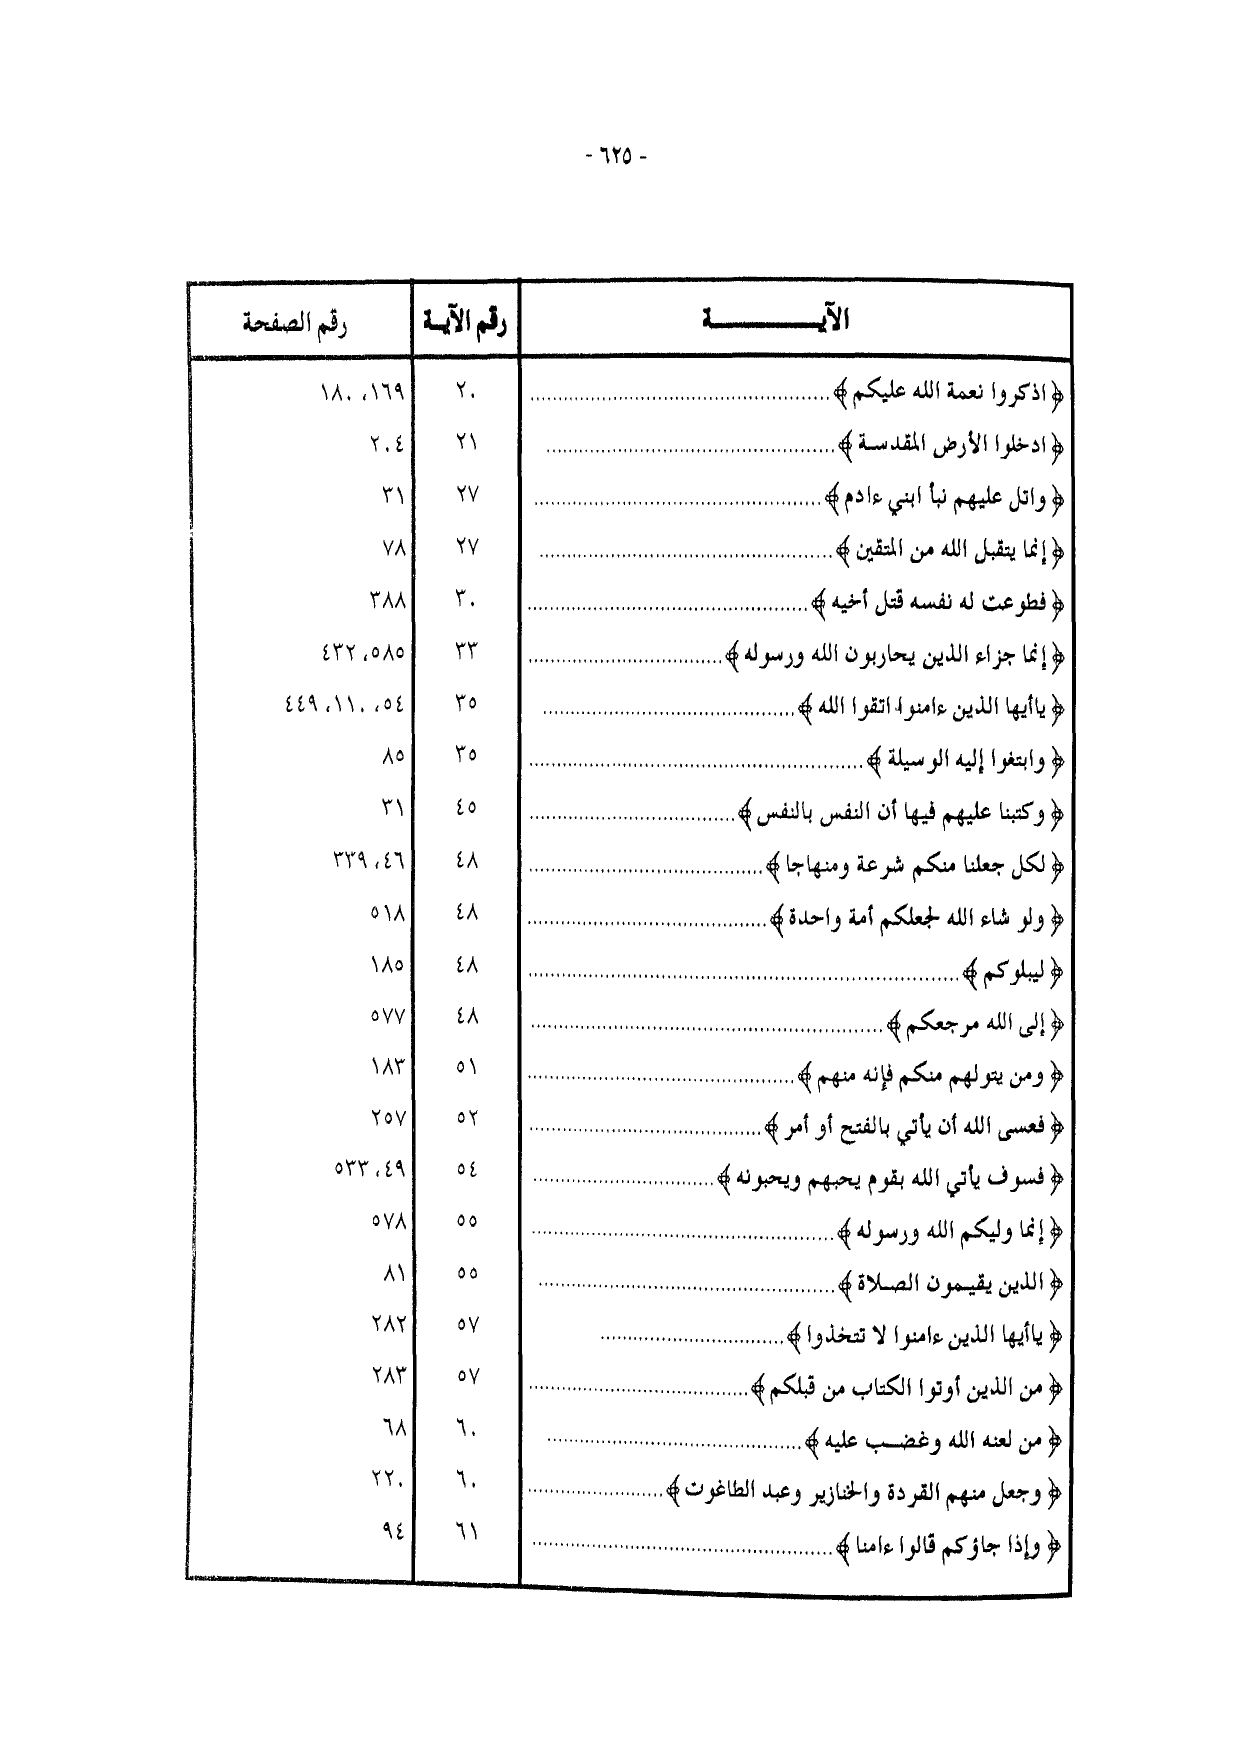 - ٦٢٥ -
الآيـــــــة رقم الآيـة رقم الصفحة
﴿ اذكروا نعمة الله عليكم ﴾ ٢٠ ١٦٩، ١٨٠
﴿ ادخلوا الأرض المقدسة ﴾ ٢١ ٢٠٤
﴿ واتل عليهم نبأ ابني ءادم ﴾ ٢٧ ٣١
﴿ إنما يتقبل الله من المتقين ﴾ ٢٧ ٧٨
﴿ فطوعت له نفسه قتل أخيه ﴾ ٣٠ ٣٨٨
﴿ إنما جزاء الذين يحاربون الله ورسوله ﴾ ٣٣ ٥٨٥، ٤٣٢
﴿ ياأيها الذين ءامنوا اتقوا الله ﴾ ٣٥ ٥٤، ١١٠، ٤٤٩
﴿ وابتغوا إليه الوسيلة ﴾ ٣٥ ٨٥
﴿ وكتبنا عليهم فيها أن النفس بالنفس ﴾ ٤٥ ٣١
﴿ لكل جعلنا منكم شرعة ومنهاجا ﴾ ٤٨ ٤٦، ٣٣٩
﴿ ولو شاء الله لجعلكم أمة واحدة ﴾ ٤٨ ٥١٨
﴿ ليبلوكم ﴾ ٤٨ ١٨٥
﴿ إلى الله مرجعكم ﴾ ٤٨ ٥٧٧
﴿ ومن يتولهم منكم فإنه منهم ﴾ ٥١ ١٨٣
﴿ فعسى الله أن يأتي بالفتح أو أمر ﴾ ٥٢ ٢٥٧
﴿ فسوف يأتي الله بقوم يحبهم ويحبونه ﴾ ٥٤ ٤٩، ٥٣٣
﴿ إنما وليكم الله ورسوله ﴾ ٥٥ ٥٧٨
﴿ الذين يقيمون الصلاة ﴾ ٥٥ ٨١
﴿ ياأيها الذين ءامنوا لا تتخذوا ﴾ ٥٧ ٢٨٢
﴿ من الذين أوتوا الكتاب من قبلكم ﴾ ٥٧ ٢٨٣
﴿ من لعنه الله وغضب عليه ﴾ ٦٠ ٦٨
﴿ وجعل منهم القردة والخنازير وعبد الطاغوت ﴾ ٦٠ ٢٢٠
﴿ وإذا جاؤكم قالوا ءامنا ﴾ ٦١ ٩٤